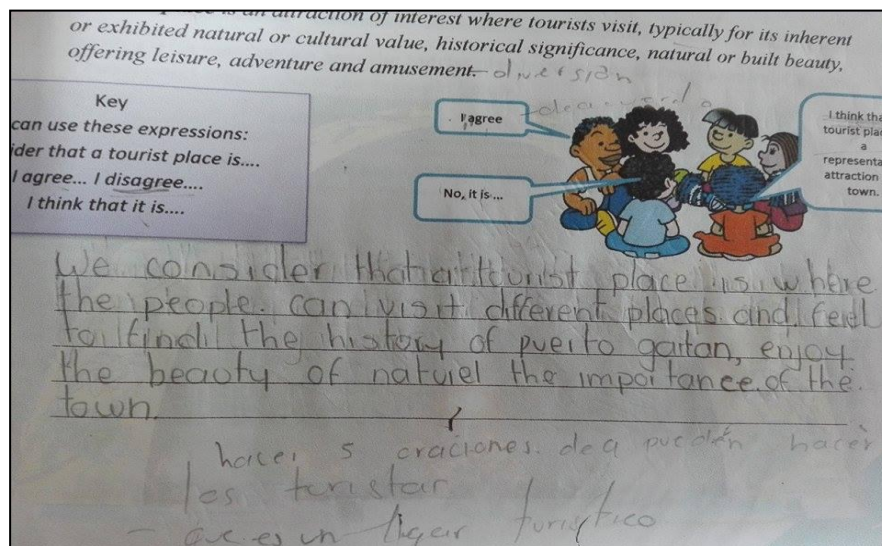 is an attraction of interest where tourists visit, typically for its inherent
or exhibited natural or cultural value, historical significance, natural or built beauty,
offering leisure, adventure and amusement.
diversión
Key
can use these expressions:
ider that a tourist place is....
I agree... I disagree....
I think that it is....
I agree
No, it is ...
I think tha
tourist plac
a
representa
attraction
town.
We consider that a tourist place is where
the people can visit different places and feel
to find the history of puerto gaitan, enjoy
the beauty of naturel the importance of the
town.
hacer 5 oraciones de q pueden hacer
los turistar
- que es un lugar turistico